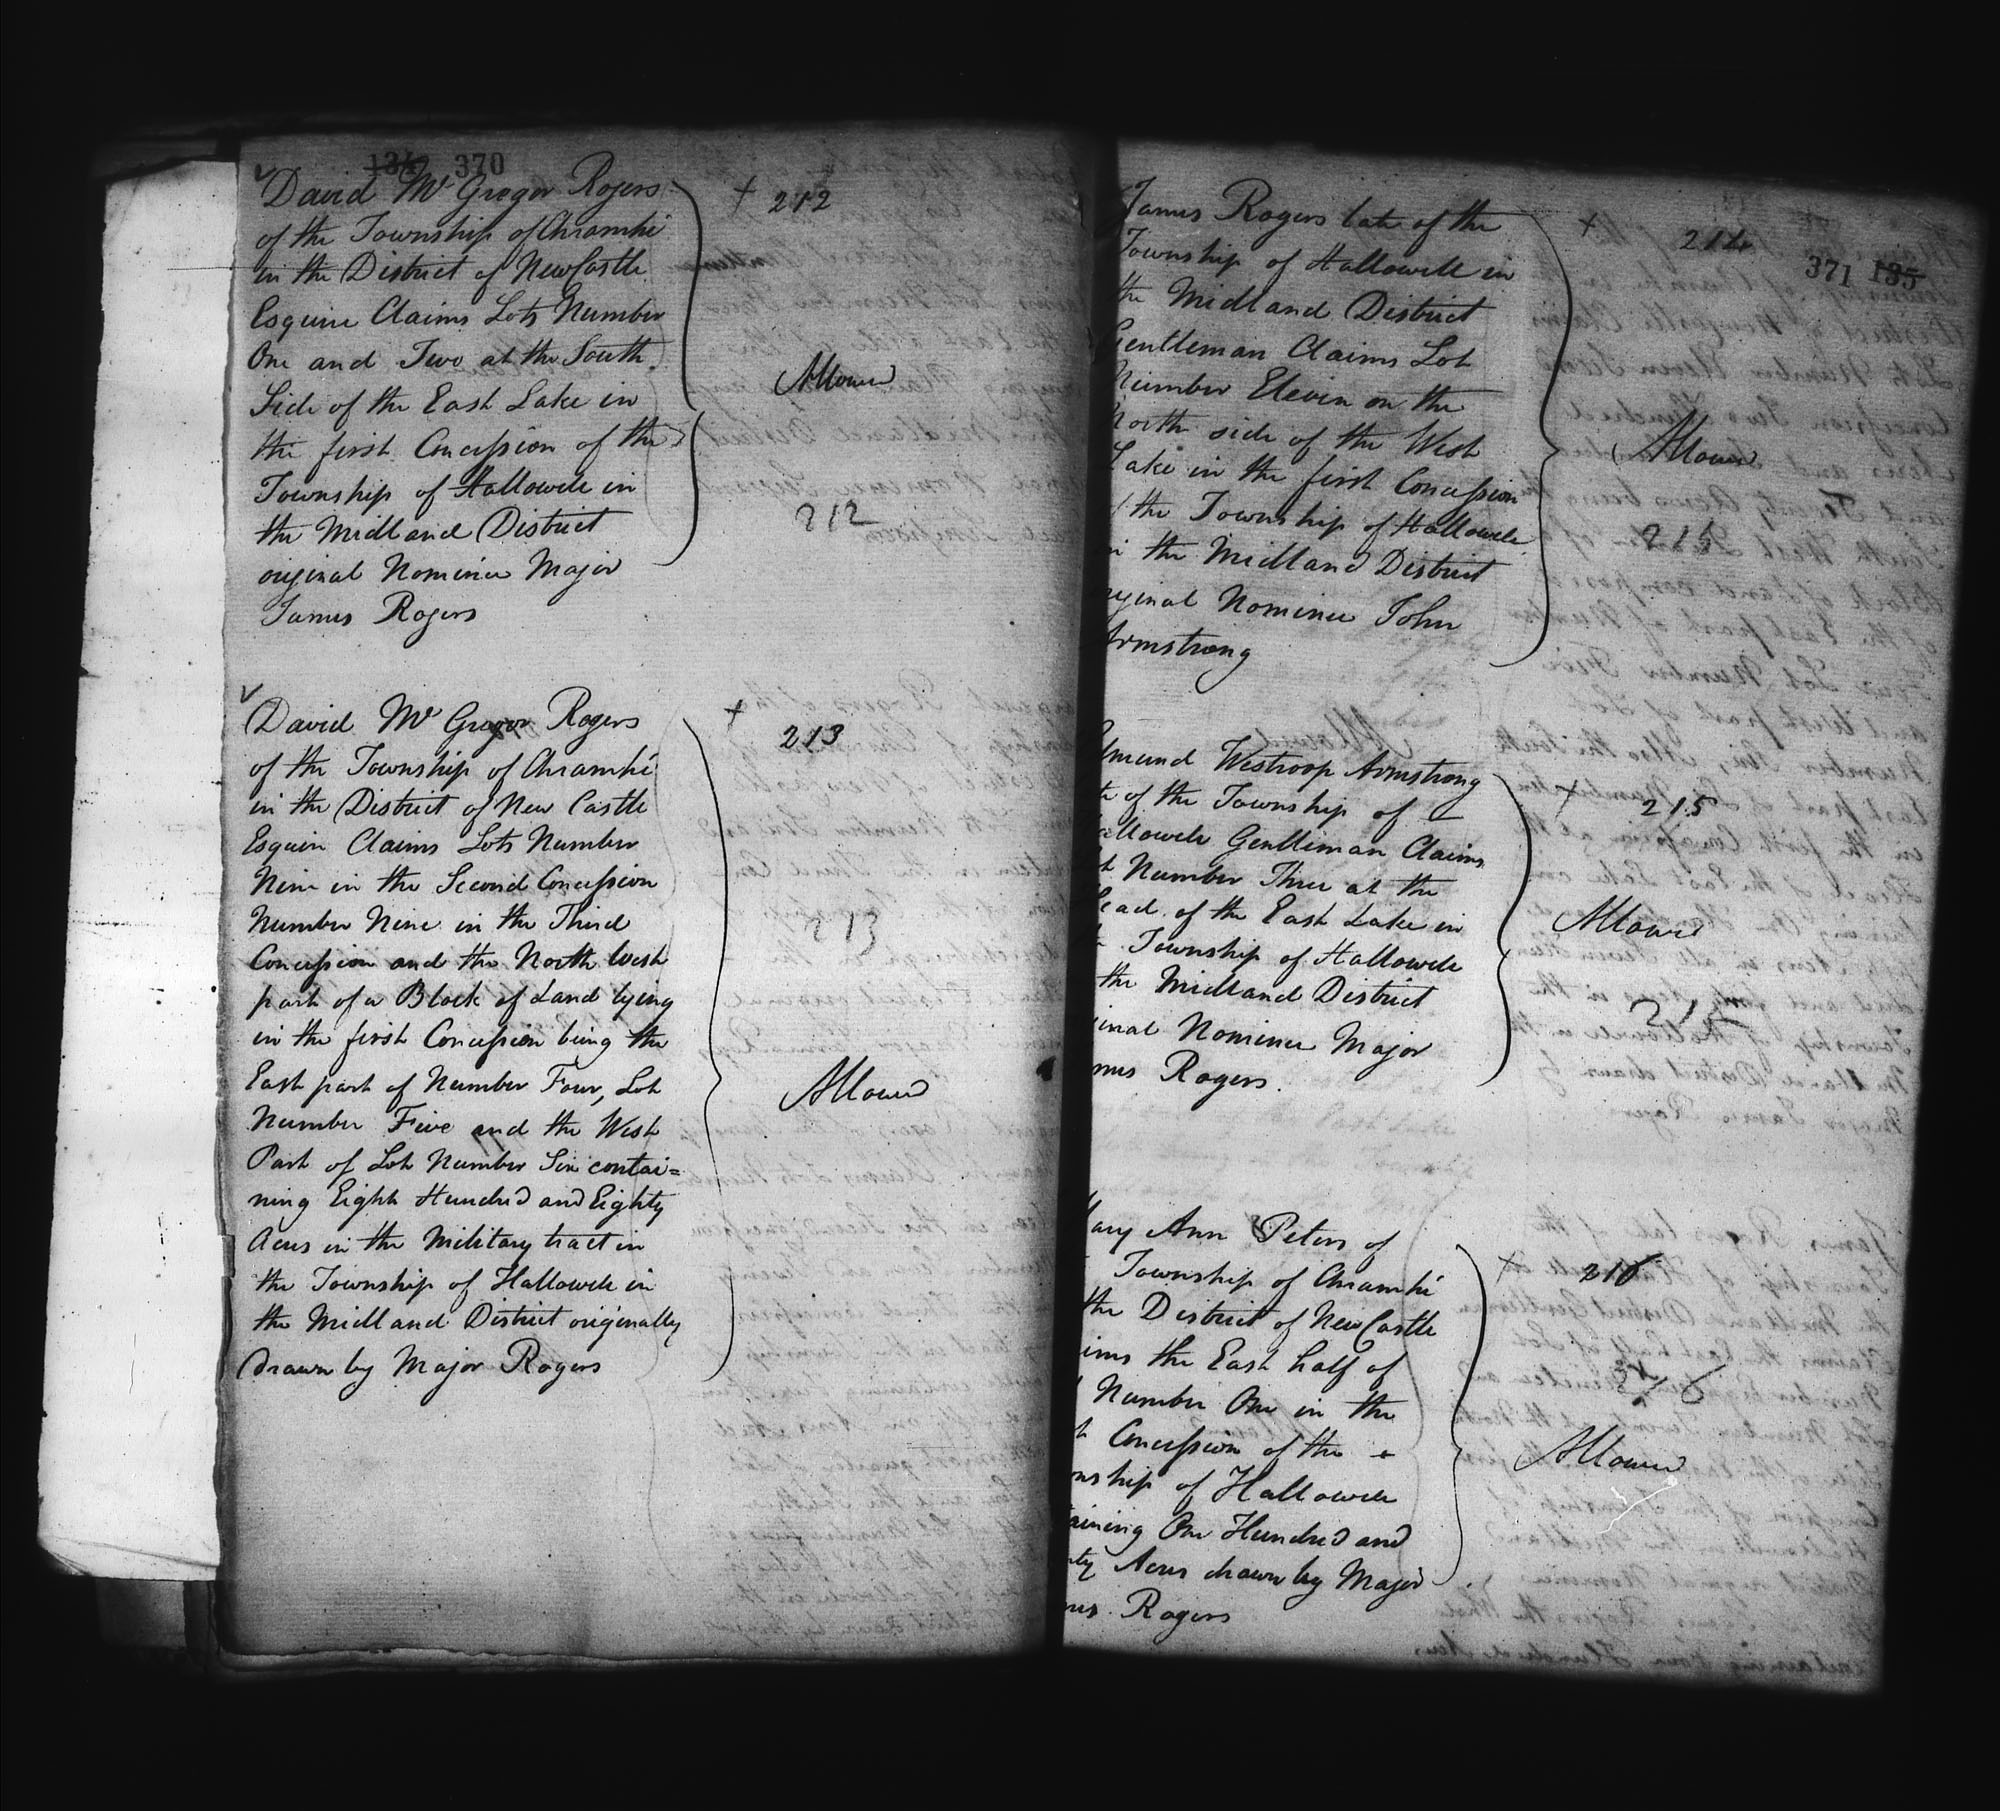 134 370
David Mc Gregor Rogers
of the Township of Cramhé
in the District of NewCastle
Esquire Claims Lots Number
One and Two at the South
Side of the East Lake in
the first Concession of the
Township of Hallowell in
the Midland District
original Nominee Major
James Rogers
+ 212
Allowed
212
David Mc Gregor Rogers
of the Township of Cramhé
in the District of New Castle
Esquire Claims Lots Number
Nine in the Second Concession
Number Nine in the Third
Concession and the North West
part of a Block of Land lying
in the first Concession being the
East part of Number Four, Lot
Number Five and the West
Part of Lot Number Six contai=
ning Eight Hundred and Eighty
Acres in the Military tract in
the Township of Hallowell in
the Midland District originally
drawn by Major Rogers
+ 213
213
Allowed
371 135
James Rogers late of the
Township of Hallowell in
the Midland District
Gentleman Claims Lot
Number Eleven on the
North side of the West
Lake in the first Concession
of the Township of Hallowell
in the Midland District
riginal Nominee John
Armstrong
+ 214
Allowed
214
dmund Westroop Armstrong
te of the Township of
allowell Gentleman Claims
t Number Three at the
Head of the East Lake in
Township of Hallowell
the Midland District
ginal Nominee Major
mes Rogers.
+ 215
Allowed
215
Mary Ann Peters of
Township of Cramhé
the District of NewCastle
aims the East half of
Number One in the
t Concession of the
nship of Hallowell
taining One Hundred and
ty Acres drawn by Major
mes Rogers
+ 216
216
Allowed